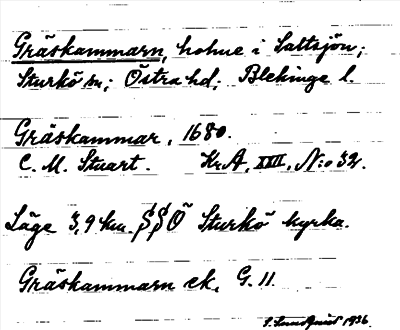 Gräskammarn, holme i Saltsjön;
Sturkö sn; Östra hd; Blekinge l.
Gräskammar, 1680.
C. M. Stuart. Kr. A, XXII, N:o 32.
Läge 3,9 km. SSÖ Sturkö kyrka.
Gräskammarn ek. G. 11.
1936